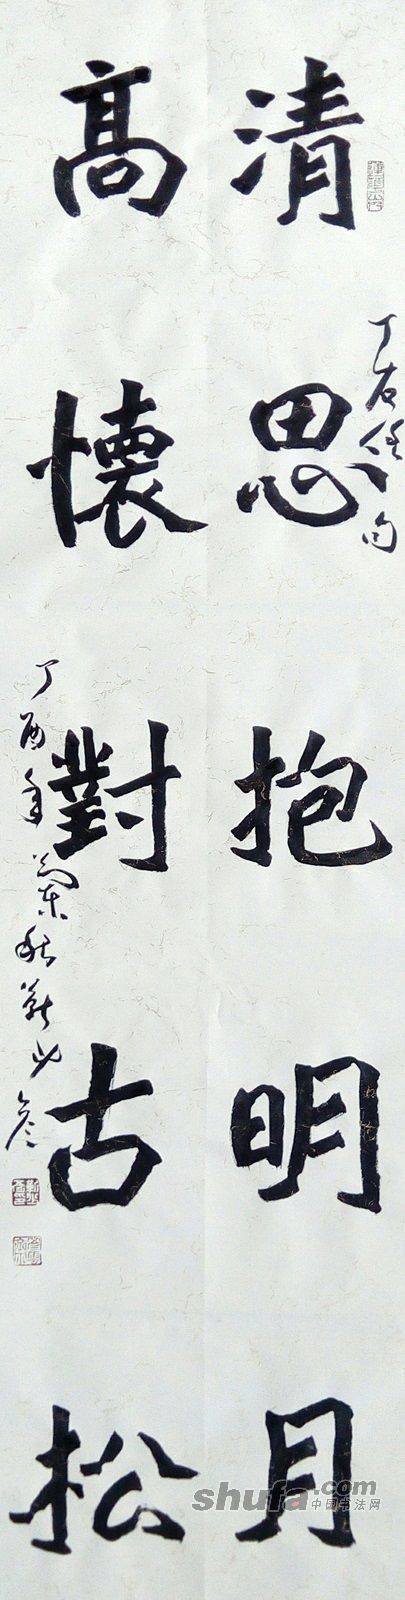 清思抱明月
高懷對古松
丁酉年蘭秋
shufa.com
中国书法网